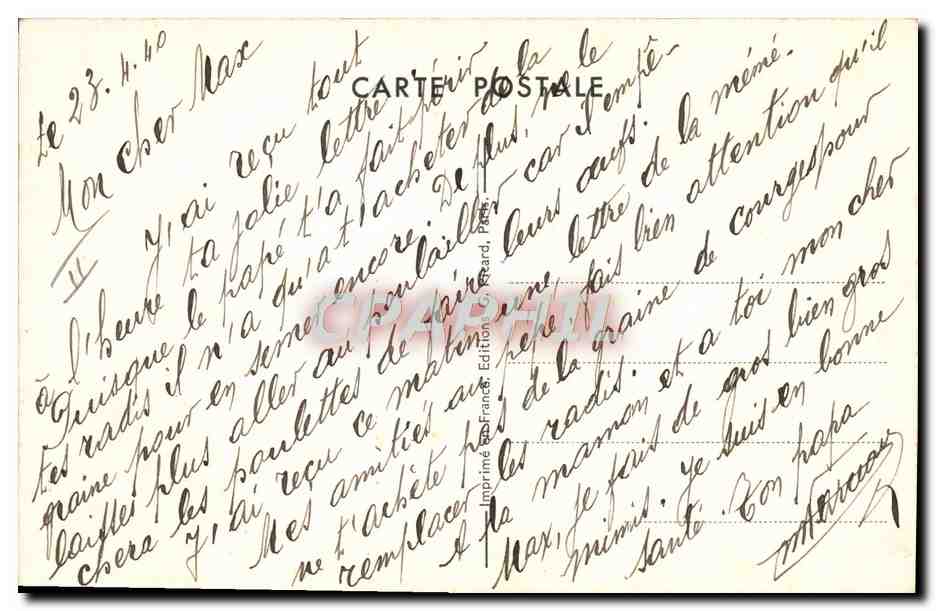 CARTE POSTALE
Le 23.4.40
Mon cher Max
J'ai reçu tout
à l'heure ta jolie lettre.
Puisque le papé t'a fait périr
tes radis il n'a qu'a t'acheter de la
graine pour en semer encore. De plus, ne le
laisses plus aller au poulailler car il empê-
chera les poulettes de faire leurs oeufs.
J'ai reçu ce matin une lettre de la mémé.
Mes amitiés au pépé, fais bien attention qu'il
ne t'achète pas de la graine de courges pour
remplacer les radis.
A ta maman et a toi mon cher
Max, je fais de gros bien gros
mimis. Je suis en bonne
santé. Ton papa
Imprimé en France, Editions G. Picard, Paris.
CPAPHIL